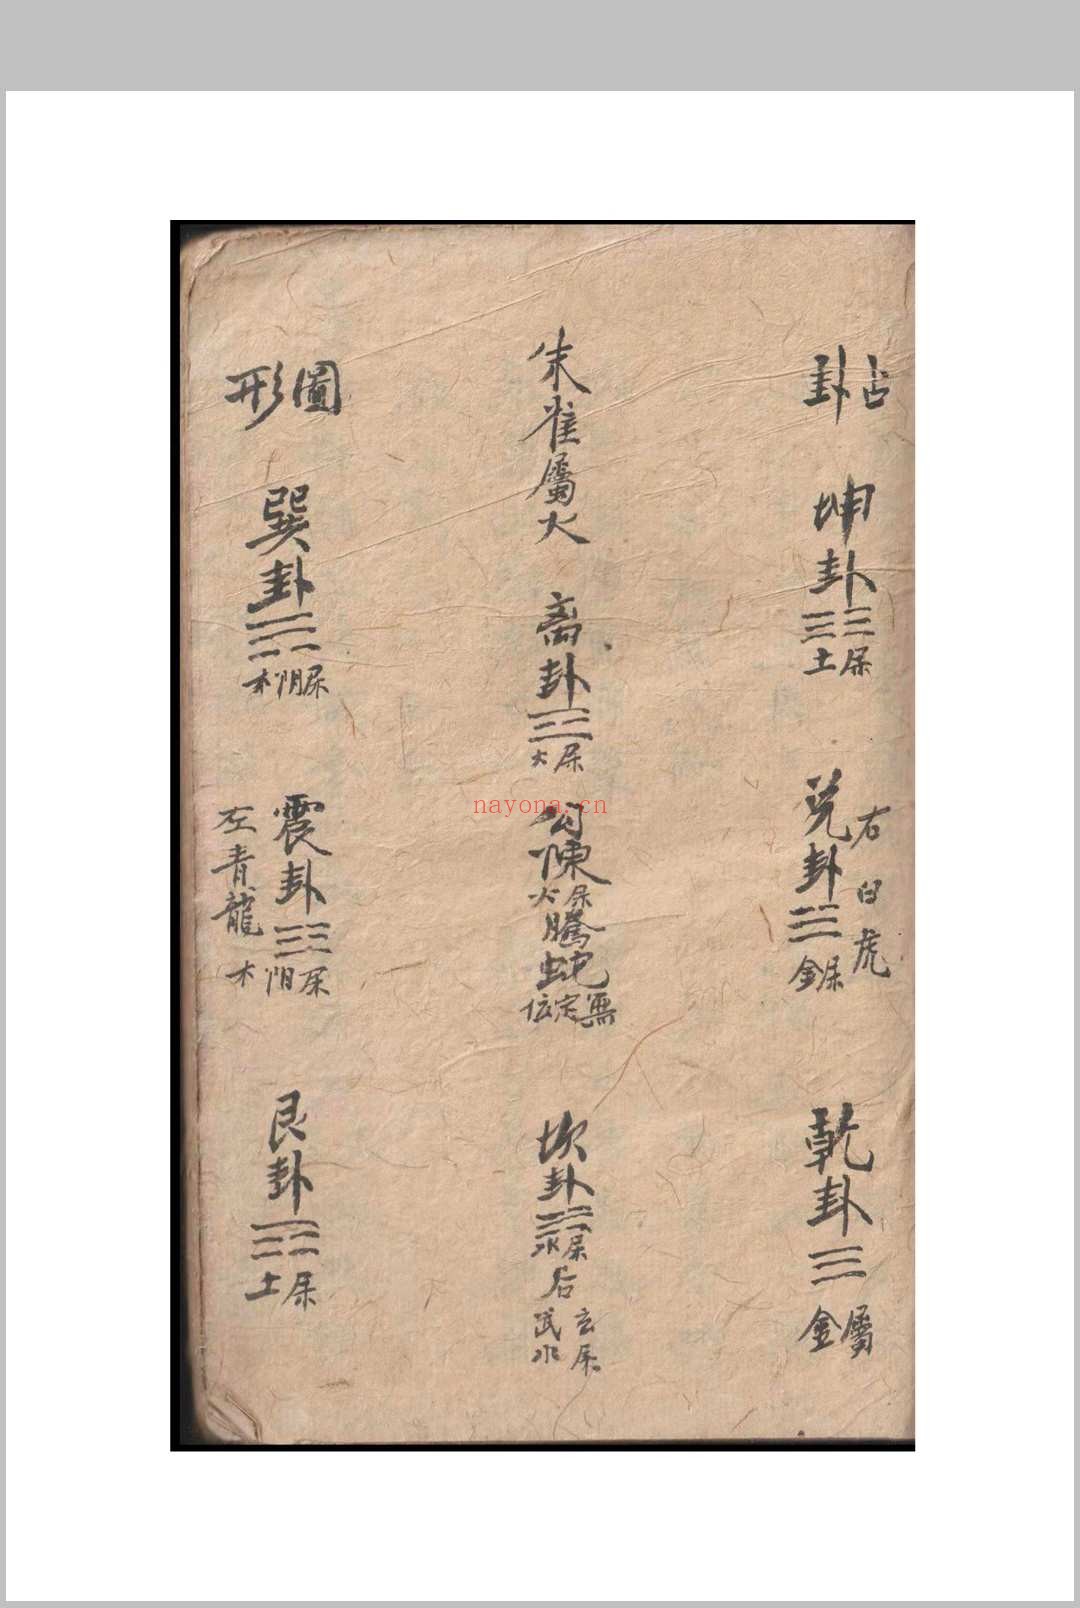 占卦
坤卦☷
屬土
右白虎
兑卦☱
屬金
乾卦☰
屬金
朱雀屬火
离卦☲
屬火
勾陳
屬火
騰蛇
無定位
坎卦☵
屬水
后玄武屬水
圖形
巽卦☴
屬阴木
震卦☳
屬阳木
左青龍
艮卦☶
屬土
nayona.cn